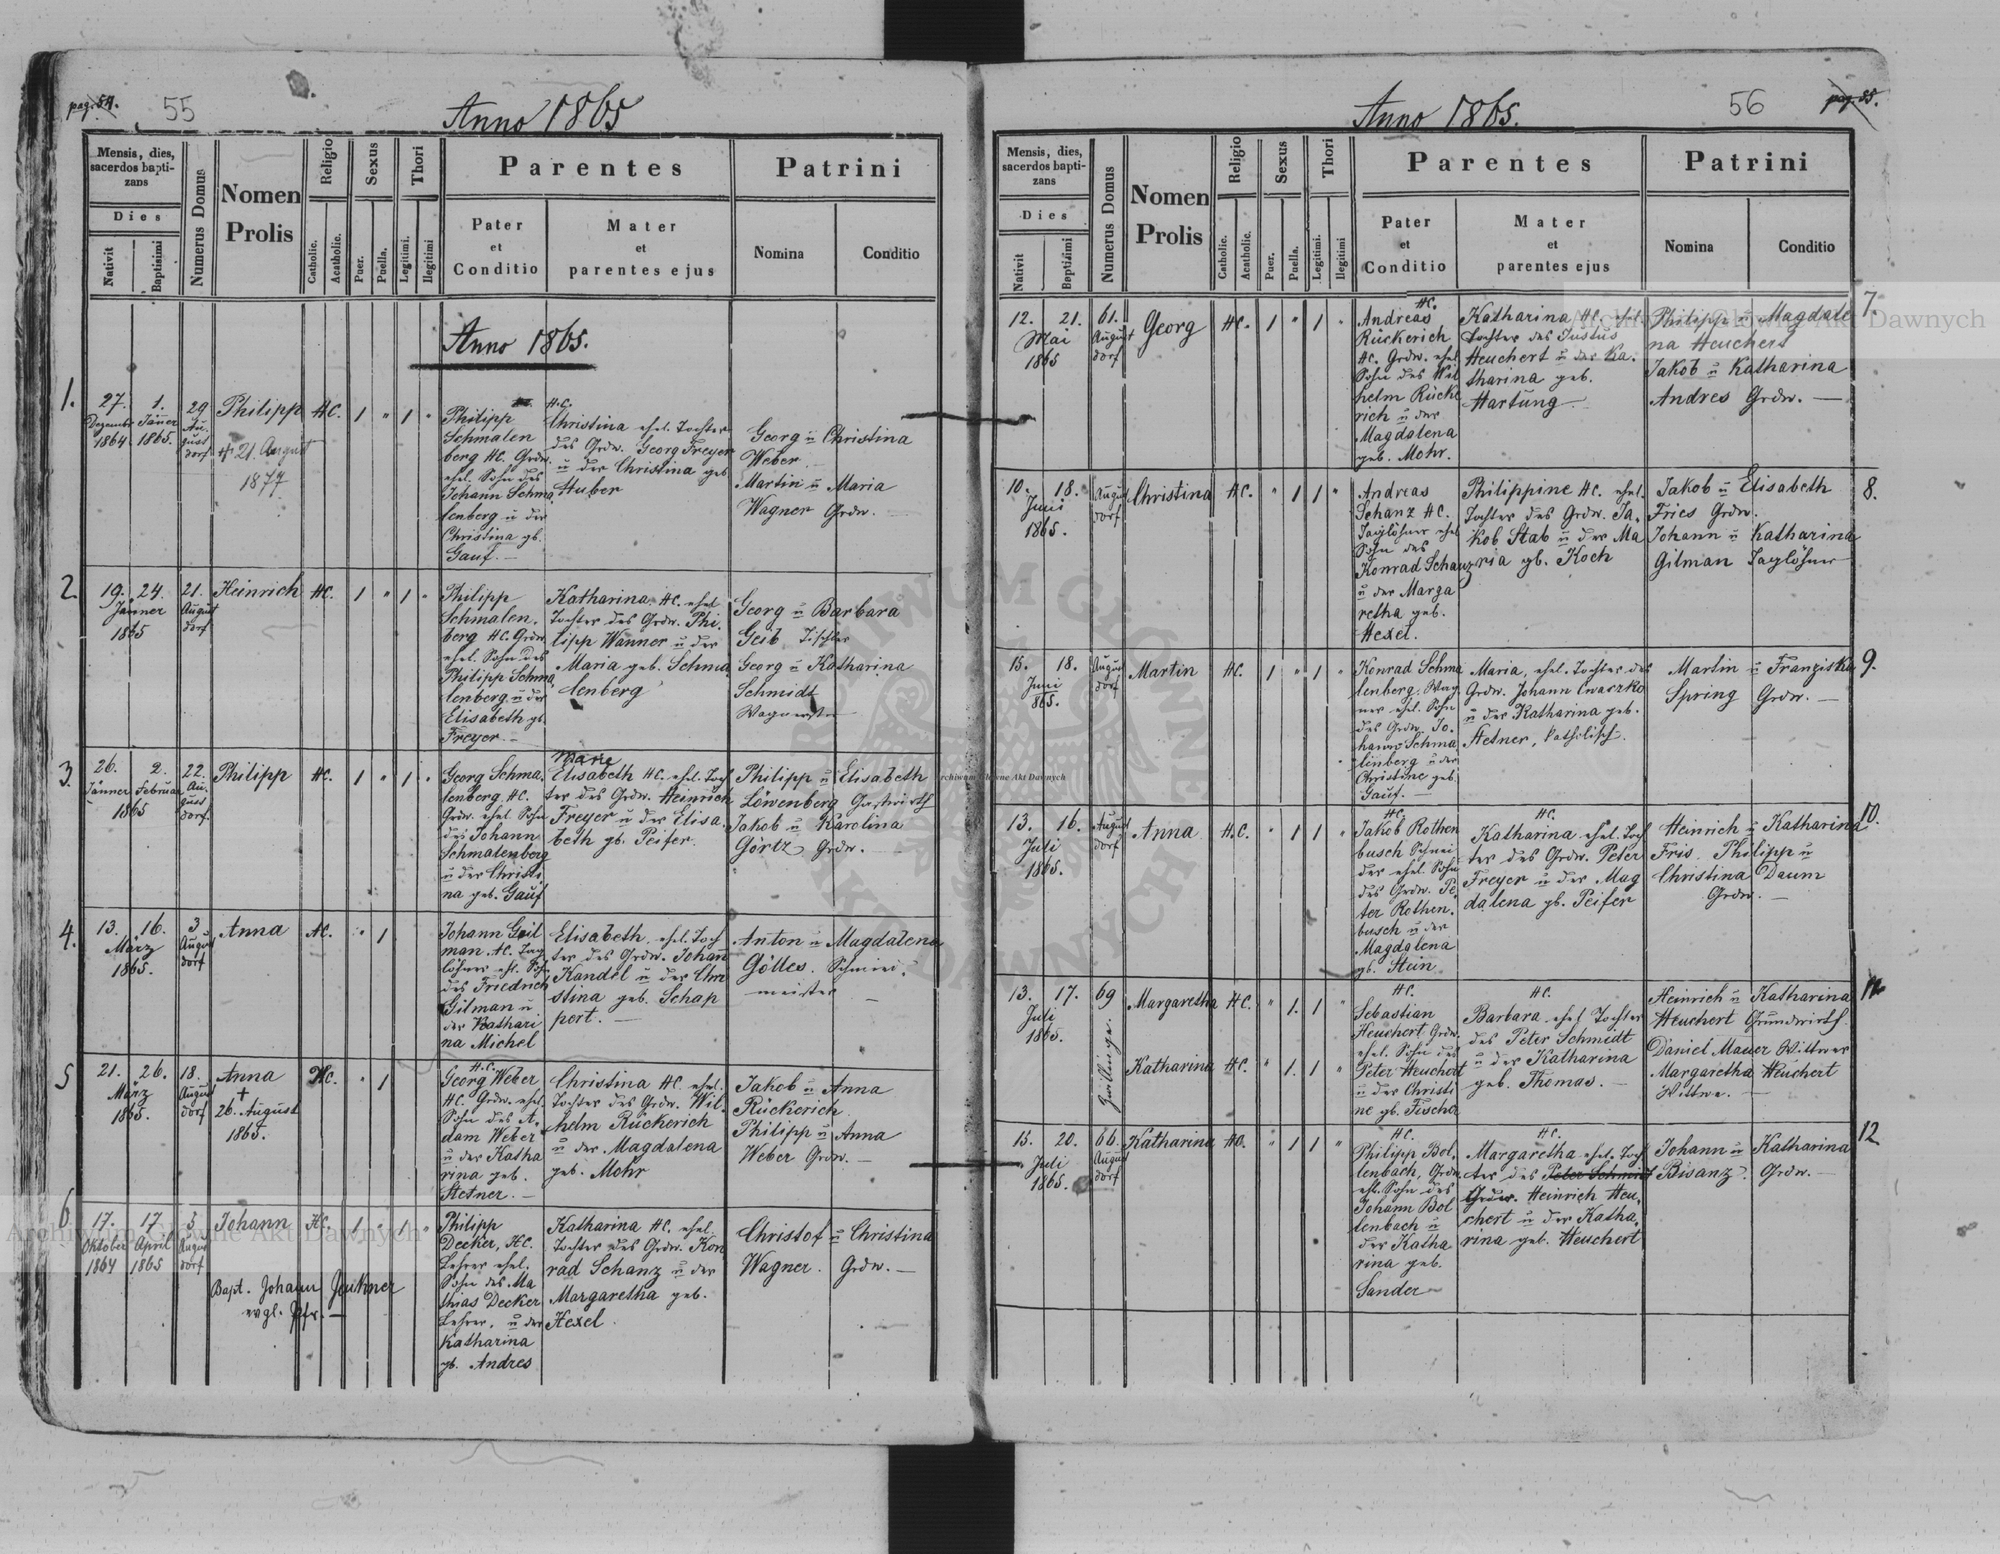 pag. 54.
55
Anno 1865
Mensis, dies,
sacerdos bapti-
zans
Dies
Nativit
Baptisimi
Numerus Domus
Nomen
Prolis
Religio
Catholic.
Acatholic.
Sexus
Puer.
Puella.
Thori
Legitimi.
Illegitimi
Parentes
Pater
et
Conditio
Mater
et
parentes ejus
Patrini
Nomina
Conditio
Anno 1865.
1.
27. 1. 29
Dezember Jäner
1864 1865.
Au-
gust
dorf
Philipp
† 21. August
1877
AC. 1 " 1 "
Philipp
Schmalen
berg AC. Grdw.
ehel. Sohn des
Johann Schma
lenberg u der
Christina gb.
Gauf. —
AC.
Christina ehel. Tochter
des Grdw. Georg Freyer
u der Christina geb
Huber
Georg u Christina
Weber
Martin u Maria
Wagner Grdw.
2
19. 24. 21.
Jänner
1865
August
dorf
Heinrich AC. 1 " 1 "
Philipp
Schmalen.
berg AC. Grdw
ehel. Sohn des
Philipp Schma,
lenberg u der
Elisabeth gb.
Freyer —
Katharina AC. ehel
Tochter des Grdw. Phi.
lipp Wanner u der
Maria geb. Schma
lenberg
Georg u Barbara
Geib Tischler
Georg u Katharina
Schmidt
3.
26. 2. 22.
Jänner Februar
1865
Au-
gust
dorf.
Philipp AC. 1 " 1 "
Georg Schma.
lenberg AC.
Grdw. ehel. Sohn
des Johann
Schmalenberg
u der Christi
na geb. Gauf
Marie
Elisabeth AC. ehel. Toch
ter des Grdw. Heinrich
Freyer u der Elisa
beth gb. Peifer.
Philipp u Elisabeth
Löwenberg Gastwirth
Jakob u Karolina
Görtz Grdw.
4.
13. 16. 3.
März
1865.
August
dorf
Anna AC. " 1
Johann Geil
man AC. Tag
löhner ehl. Sohn
des Friedrich
Gilman u
der Kathari
na Michel
Elisabeth ehel. Toch
ter des Grdw. Johan
Kandel u der Chri
stina geb. Schap
pert. —
Anton u Magdalena
Gölles. Schmied-
meister —
5
21. 26. 18.
März
1865.
August
dorf
Anna
†
26. August
1865.
AC. " 1
AC.
Georg Weber
AC. Grdw. ehel
Sohn des A-
dam Weber
u der Katha
rina geb.
Hetner. —
Christina AC. ehel.
Tochter des Grdw. Wil-
helm Rückerich
u der Magdalena
geb. Mohr
Jakob u Anna
Rückerich
Philipp u Anna
Weber Grdw. —
6.
17. 17 3
Oktober April
1864 1865
August
dorf
Johann AC. 1 " 1 "
Bapt. Johann Jenkner
evgl. Pfr. —
Philipp
Decker, AC.
Lehrer ehel.
Sohn des Ma
thias Decker
Lehrer, u der
Katharina
gb. Andres
Katharina AC. ehel.
Tochter des Grdw. Kon
rad Schanz u der
Margaretha geb.
Hexel.
Christof u Christina
Wagner. Grdw. —
Anno 1865.
56
pag. 55.
Mensis, dies,
sacerdos bapti-
zans
Dies
Nativit
Baptisimi
Numerus Domus
Nomen
Prolis
Religio
Catholic.
Acatholic.
Sexus
Puer.
Puella.
Thori
Legitimi.
Illegitimi
Parentes
Pater
et
Conditio
Mater
et
parentes ejus
Patrini
Nomina
Conditio
12. 21. 61.
Mai
1865
August
dorf
Georg AC. 1 " 1 "
AC.
Andreas
Rückerich
AC. Grdw. ehel
Sohn des Wil
helm Rücke
rich u der
Magdalena
geb. Mohr.
Katharina AC. ehel.
Tochter des Justus
Heuchert u der Ka.
tharina geb.
Hartung.
Philipp u Magdale
na Heuchert
Jakob u Katharina
Andres Grdw. —
7.
10. 18.
Juni
1865.
August
dorf
Christina AC. " 1 1 "
Andreas
Schanz AC.
Taglöhner ehel
Sohn des
Konrad Schanz
u der Marga
retha geb.
Hexel.
Philippine AC. ehel.
Tochter des Grdw. Ja.
kob Stab u der Ma
ria gb. Koch
Jakob u Elisabeth
Fries Grdw.
Johann u Katharina
Gilman Taglöhner
8.
15. 18.
Juni
865.
August
dorf
Martin AC. 1 " 1 "
Konrad Schma
lenberg. Wag-
ner ehel. Sohn
des Grdw. Jo-
hann Schma
lenberg u der
Christine geb
Gauf. —
Maria, ehel. Tochter des
Grdw. Johann Cwaczko
u der Katharina geb.
Hetner, katholisch.
Martin u Franziska
Spring Grdw. —
9.
13. 16.
Juli
1865.
August
dorf
Anna A.C. " 1 1 "
AC.
Jakob Rothen
busch Schnei
der ehel. Sohn
des Grdw. Pe
ter Rothen.
busch u der
Magdalena
gb. Stein
AC.
Katharina ehel. Toch
ter des Grdw. Peter
Freyer u der Mag
dalena gb. Peifer
Heinrich u Katharina
Fris. Philipp u
Christina Daum
Grdw. —
10.
13. 17. 69
Juli
1865.
Zwillinge.
Margaretha AC. " 1. 1 "
Katharina AC. " 1. 1 "
AC.
Sebastian
Heuchert Grdw.
ehel. Sohn des
Peter Heuchert
u der Christi
ne gb. Fischer
AC.
Barbara ehel Tochter
des Peter Schmidt
u der Katharina
geb. Thomas. —
Heinrich u Katharina
Heuchert Grundwirth.
Daniel Mauer Wittwer
Margaretha Heuchert
Wittwe. —
11
15. 20. 66.
Juli
1865.
August
dorf
Katharina AC. " 1 1 "
AC.
Philipp Bol.
lenbach, Grdw
ehl. Sohn des
Johann Bol
lenbach u
der Katha
rina geb.
Sander —
AC.
Margaretha ehel. Toch
ter des Peter Schmidt
Grdw. Heinrich Heu,
chert u der Katha,
rina geb. Heuchert
Johann u Katharina
Bisanz. Grdw. —
12
Archiwum Główne Akt Dawnych
Archiwum Główne Akt Dawnych
Archiwum Główne Akt Dawnych
ARCHIWUM GŁÓWNE AKT DAWNYCH